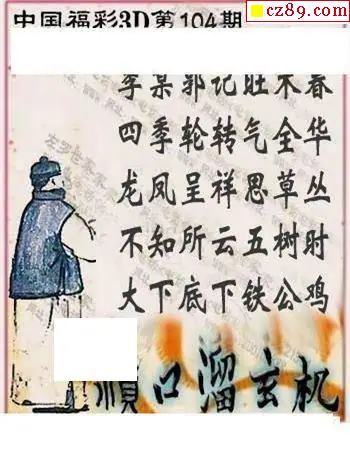 cz89.com
中国福彩3D第104期
李某郭记旺木春
四季轮转气全华
龙凤呈祥思草丛
不知所云五树时
大下底下铁公鸡
顺口溜玄机